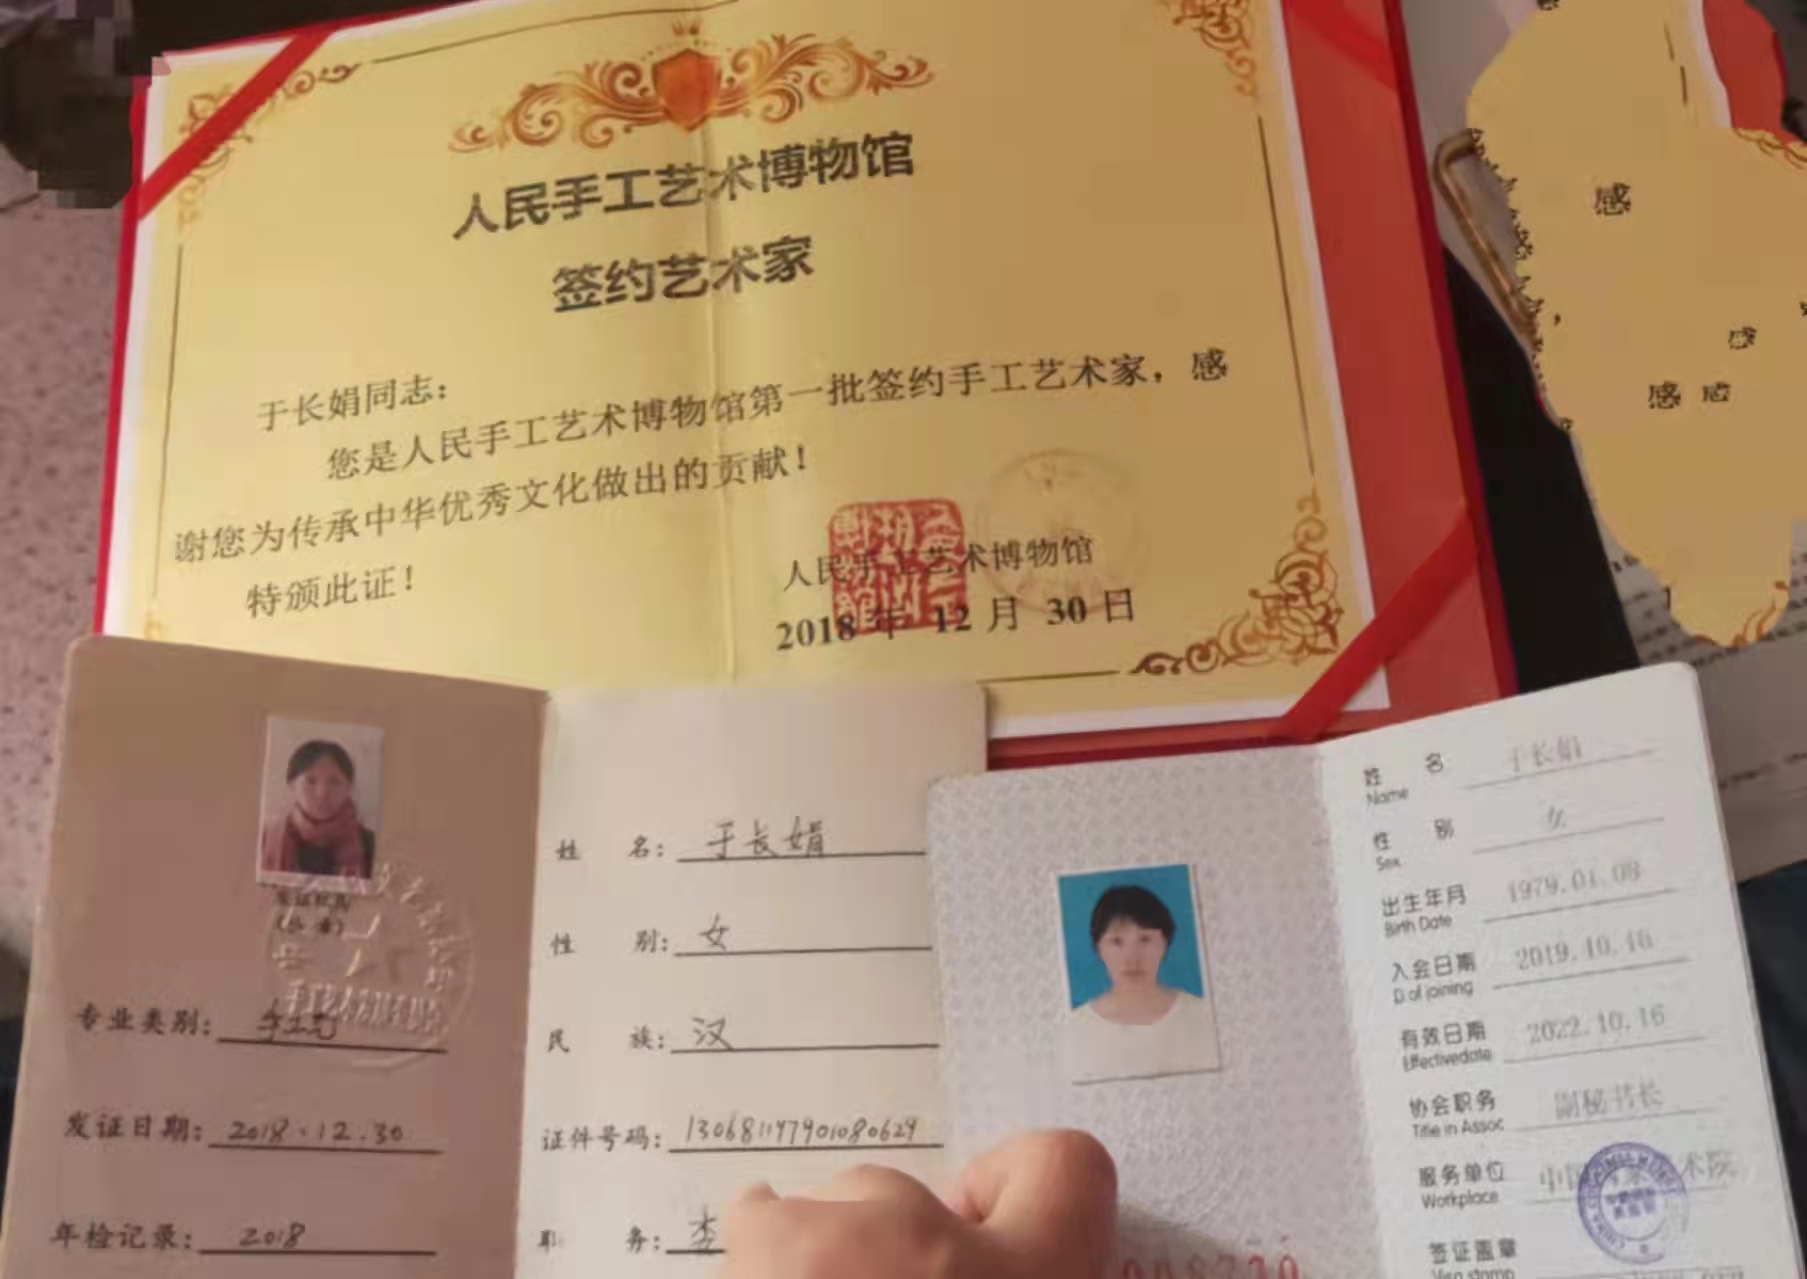 人民手工艺术博物馆
签约艺术家
于长娟同志：
您是人民手工艺术博物馆第一批签约手工艺术家，感
谢您为传承中华优秀文化做出的贡献！
特颁此证！
人民手工艺术博物馆
2018 年 12 月 30 日
感
感
感 感
发证机关
（公章）
专业类别：
发证日期： 2018.12.30
年检记录： 2018
姓 名： 于长娟
性 别： 女
民 族： 汉
证件号码： 130681197901080624
职 务：
姓 名 于长娟
Name
性 别 女
Sex
出生年月 1979.01.08
Birth Date
入会日期 2019.10.16
D of joining
有效日期 2022.10.16
Effectivedate
协会职务 副秘书长
Title in Assoc
服务单位 中国 术院
Workplace
签证盖章
Visa stamp